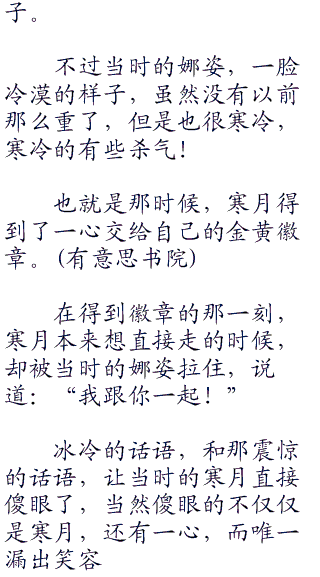 子。
不过当时的娜姿，一脸
冷漠的样子，虽然没有以前
那么重了，但是也很寒冷，
寒冷的有些杀气！
也就是那时候，寒月得
到了一心交给自己的金黄徽
章。(有意思书院)
在得到徽章的那一刻，
寒月本来想直接走的时候，
却被当时的娜姿拉住，说
道：“我跟你一起！”
冰冷的话语，和那震惊
的话语，让当时的寒月直接
傻眼了，当然傻眼的不仅仅
是寒月，还有一心，而唯一
漏出笑容